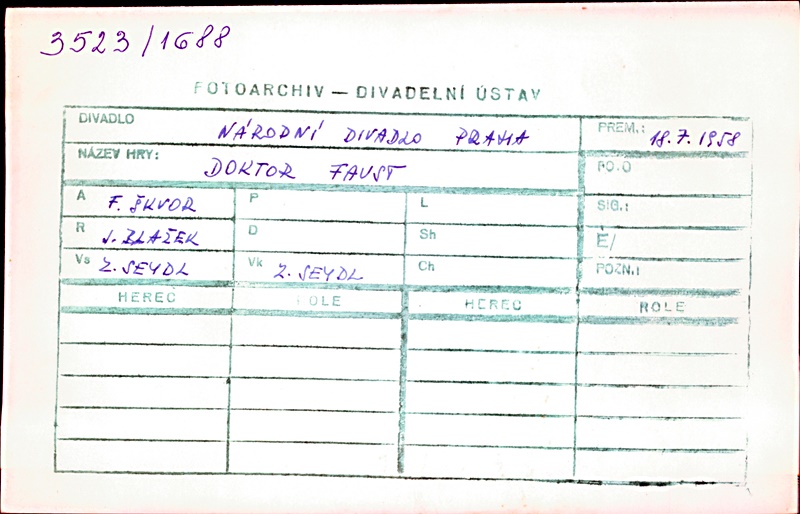 3523/1688
FOTOARCHIV — DIVADELNÍ ÚSTAV
DIVADLO NÁRODNÍ DIVADLO PRAHA PREM.: 18.7.1958
NÁZEV HRY: DOKTOR FAUST PO.Č
A F. ŠKVOR P L SIG.:
R J. BLAŽEK D Sh Č/
Vs Z. SEYDL Vk Z. SEYDL Ch POZN.:
HEREC ROLE HEREC ROLE